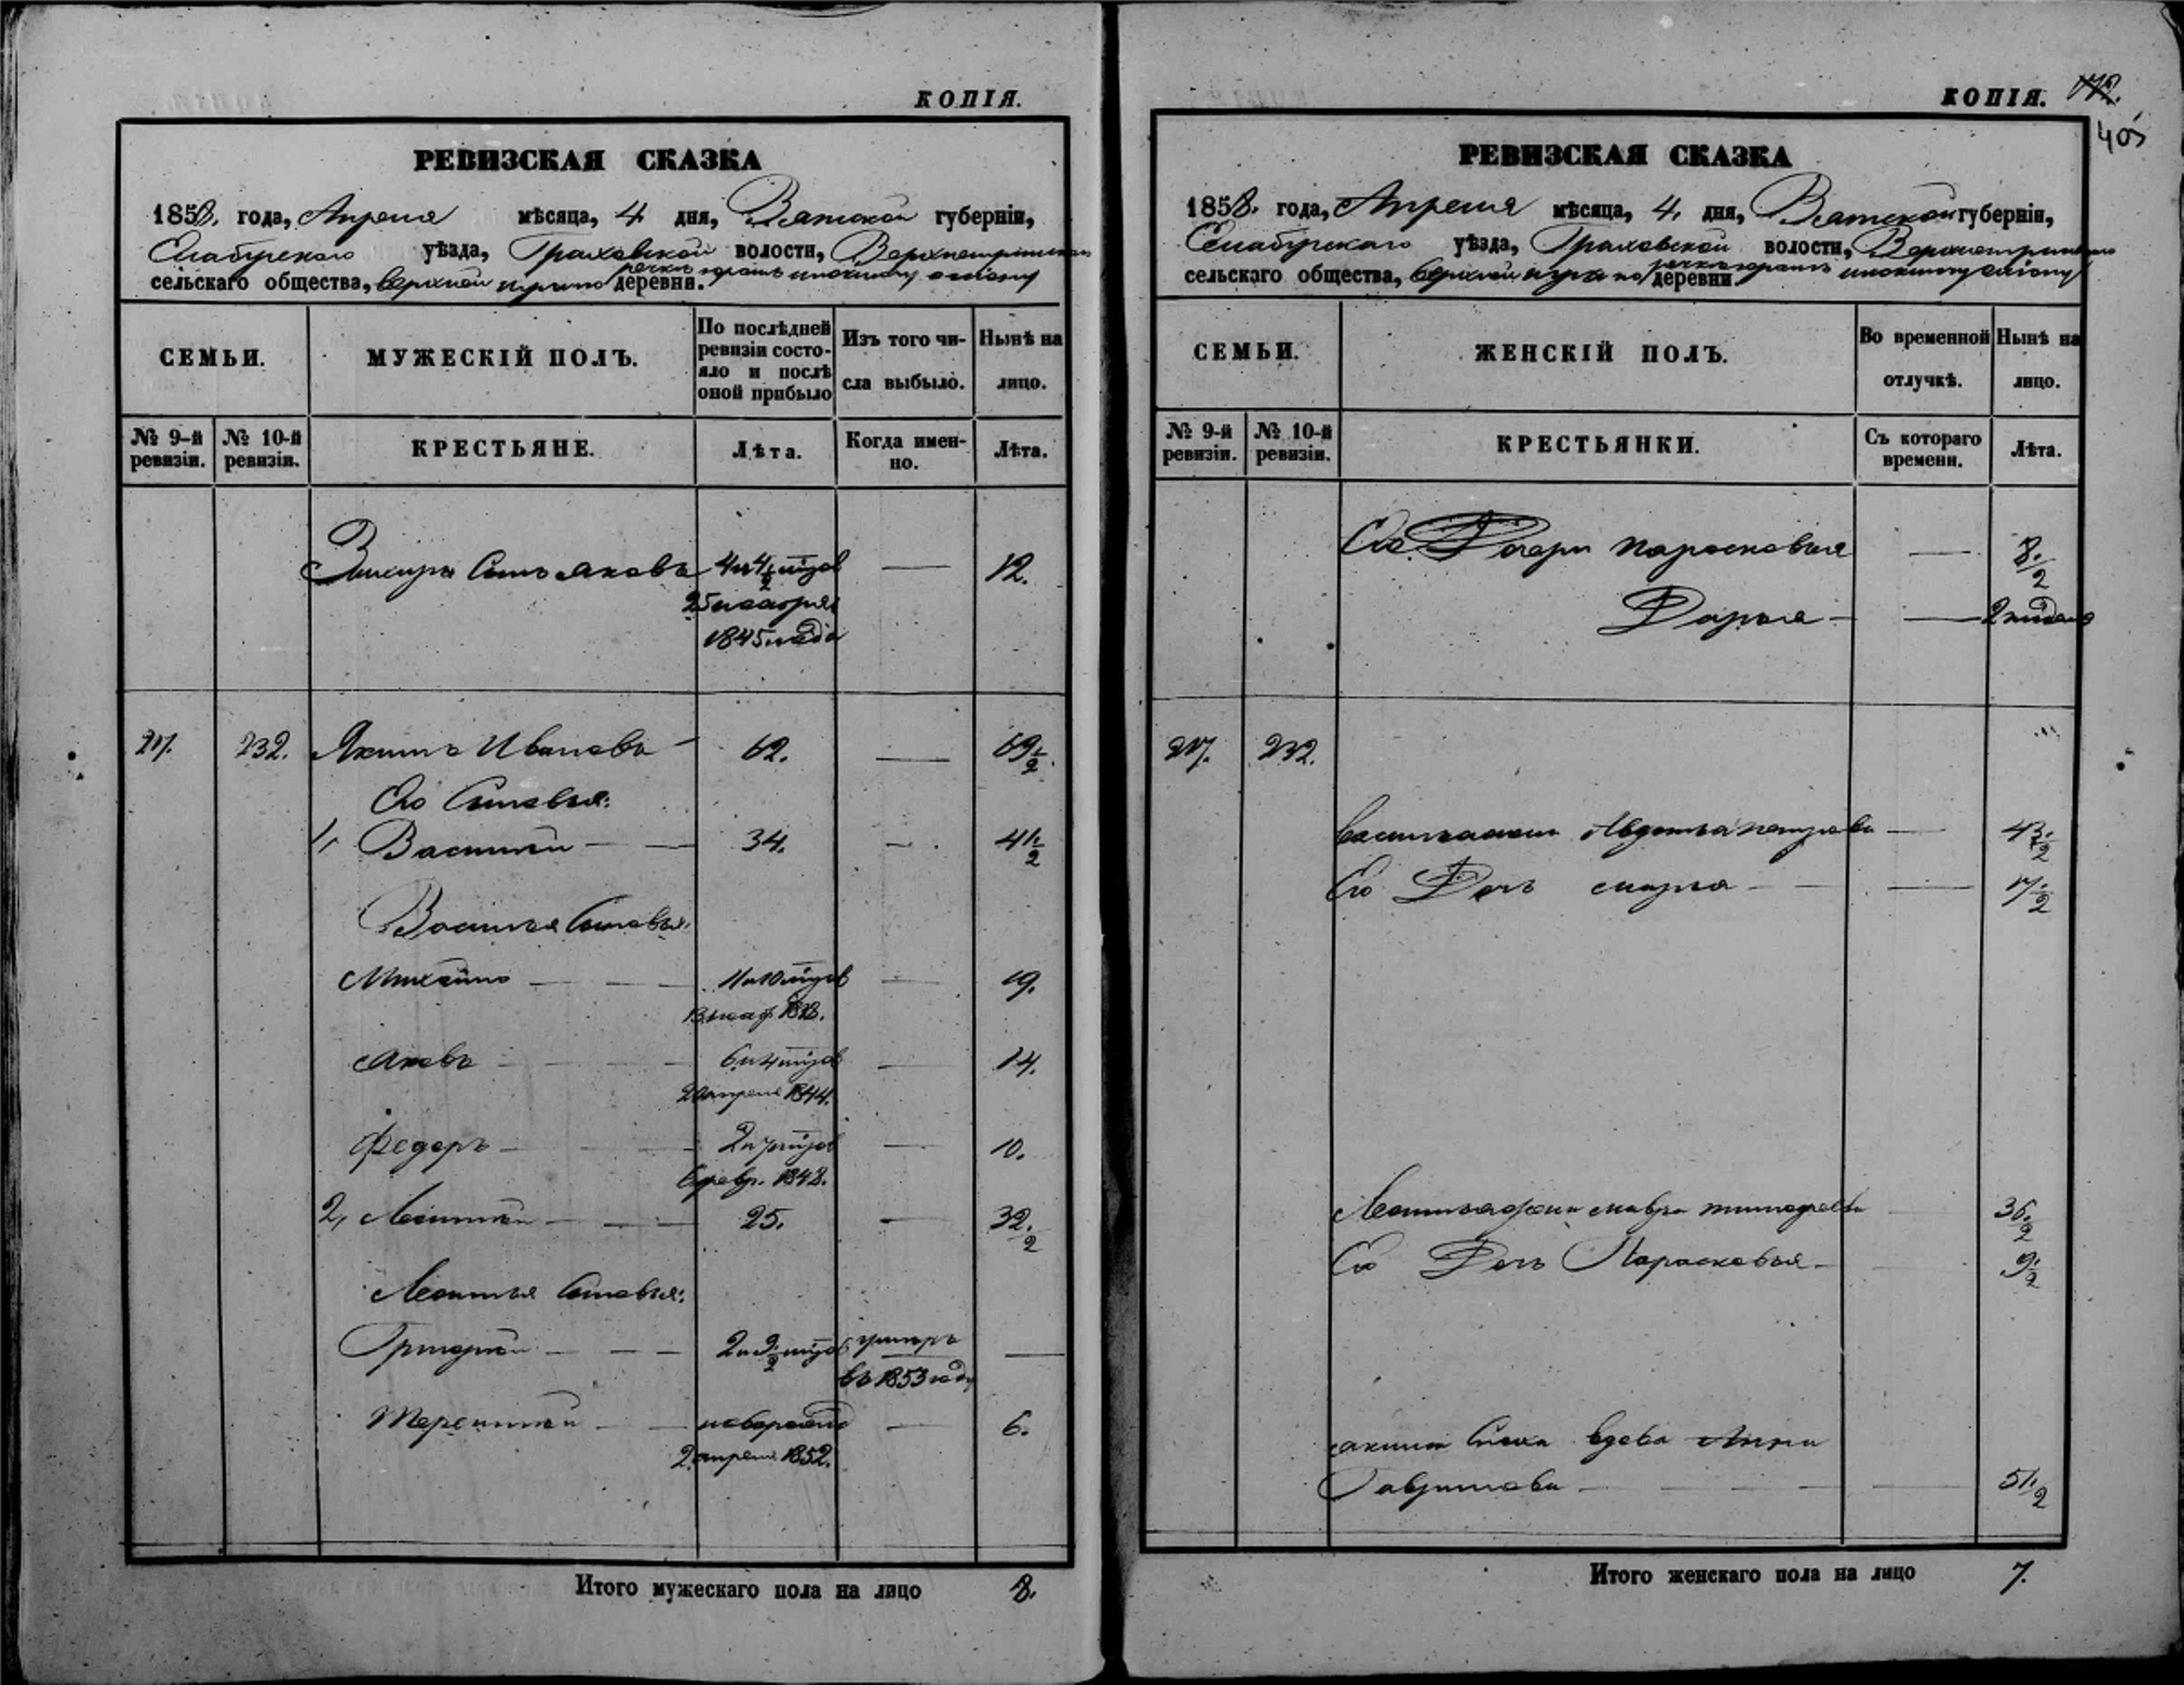 КОПІЯ.
РЕВИЗСКАЯ СКАЗКА
1858. года, Апреля мѣсяца, 4 дня, Вятской губерніи,
Елабугскаго уѣзда, Граховской волости,
сельскаго общества, верхней деревни.
СЕМЬИ.
МУЖЕСКІЙ ПОЛЪ.
По послѣдней ревизіи состояло и послѣ оной прибыло
Изъ того числа выбыло.
Нынѣ на лицо.
№ 9-й ревизіи.
№ 10-й ревизіи.
КРЕСТЬЯНЕ.
Лѣта.
Когда именно.
Лѣта.
Сынъ Яковъ 12.
1845 года
217. 232. Якимъ Ивановъ 62. 69 1/2
Его Сыновья:
1, Василий 34. 41 1/2
Василья Сыновья:
Михайло 11 и 10 мцов 19.
Яковъ 6 и 4 мцов 14.
20 апреля 1844.
Федоръ 2 и 7 мцов 10.
6 февр. 1848.
2, Леонтий 25. 32 1/2
Леонтья Сыновья:
Григорий умеръ
въ 1853 году
Терентий новорожд 6.
2 апреля 1852.
Итого мужескаго пола на лицо 8.
КОПІЯ.
405
РЕВИЗСКАЯ СКАЗКА
1858. года, Апреля мѣсяца, 4. дня, Вятской губерніи,
Елабугскаго уѣзда, Граховской волости,
сельскаго общества, верхней деревни.
СЕМЬИ.
ЖЕНСКІЙ ПОЛЪ.
Во временной отлучкѣ.
Нынѣ на лицо.
№ 9-й ревизіи.
№ 10-й ревизіи.
КРЕСТЬЯНКИ.
Съ котораго времени.
Лѣта.
Его Дочери Парасковья 8 1/2
Дарья
217. 232.
Васильева жена Авдотья Петрова 43 1/2
Его Дочь Марья 17 1/2
Леонтья жена Мавра Тимофеева 36 1/2
Его Дочь Парасковья 9 1/2
Якима Сноха вдова Анна
Гаврилова 51 1/2
Итого женскаго пола на лицо 7.